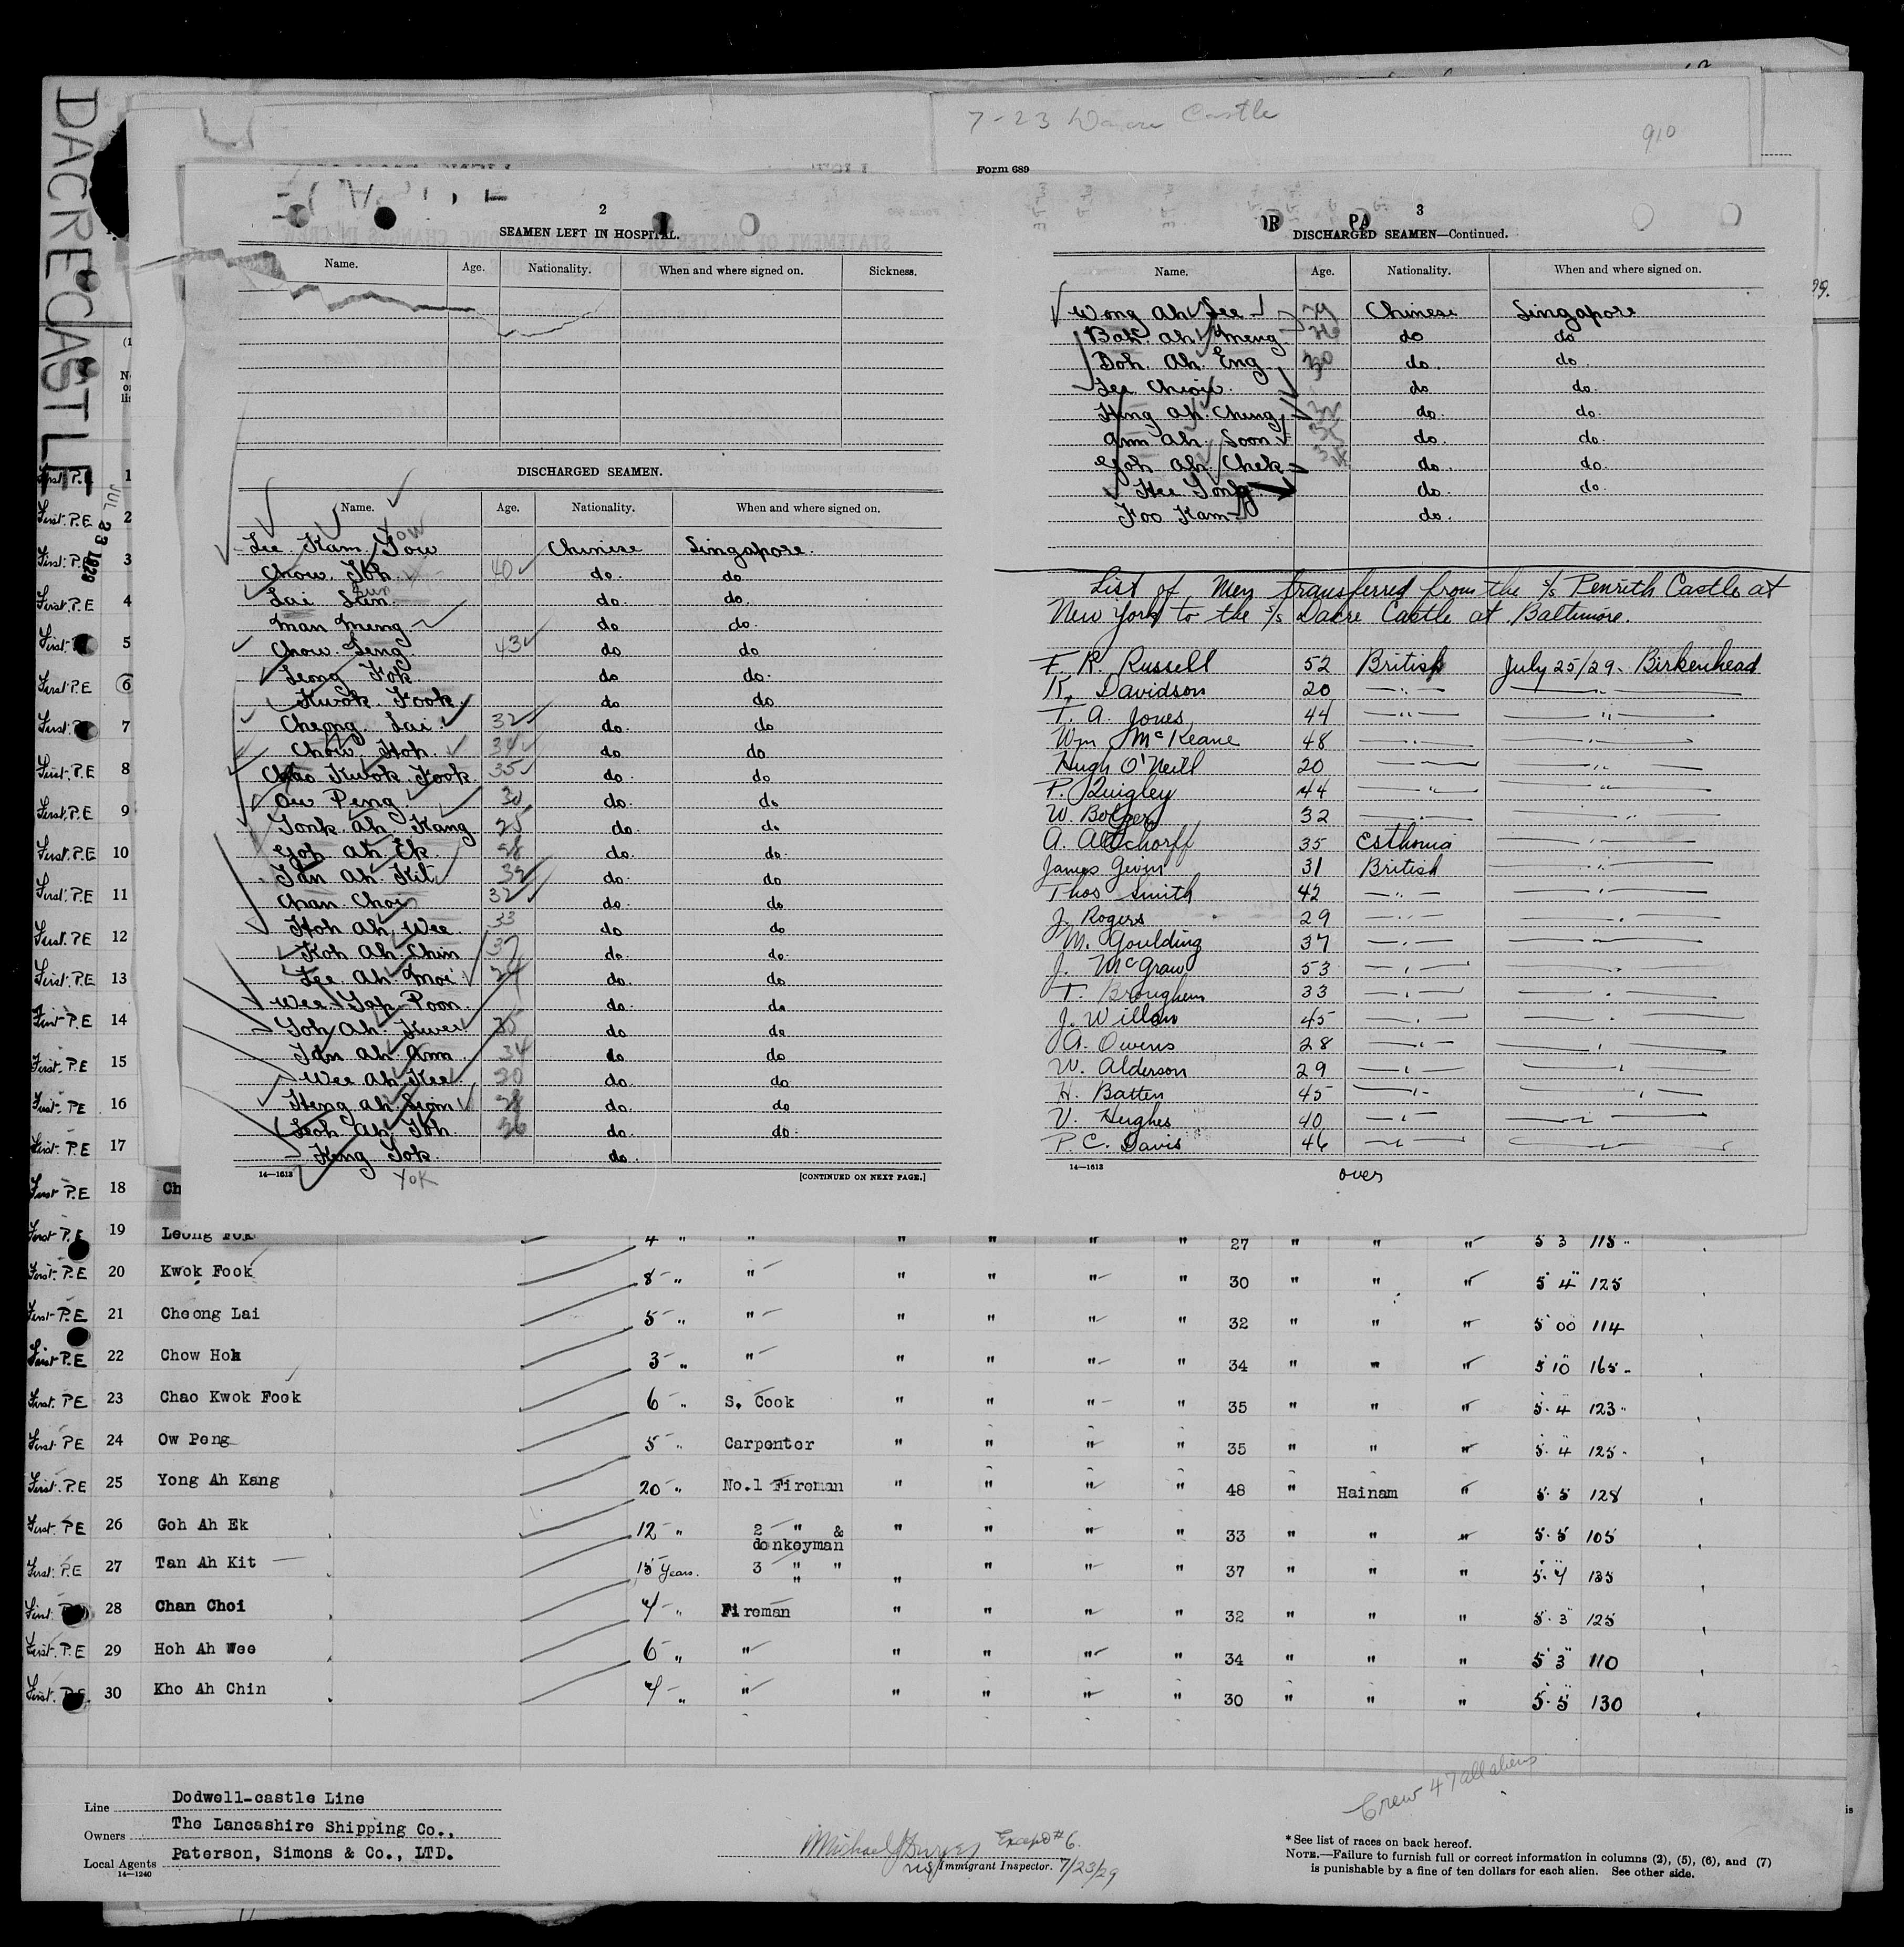 DACRE CASTLE
JUL 23 1929
7-23 Dacre Castle
910
Form 689
2
SEAMEN LEFT IN HOSPITAL.
Name. Age. Nationality. When and where signed on. Sickness.
DISCHARGED SEAMEN.
Name. Age. Nationality. When and where signed on.
Lee Kam Yow Chinese Singapore.
Chow Toh 40 do. do
Lai Sun do. do.
Man Meng do do.
Chow Seng 43 do do
Leong Fok do do.
Kwok Fook do do
Cheong Lai 32 do. do
Chow Hoh 34 do do
Chao Kwok Fook 35 do. do
Ow Peng 30 do. do
Yonk Ah Kang 25 do. do
Goh Ah Ek 28 do. do.
Tan Ah Kit 32 do. do
Chan Choi 32 do. do
Hoh Ah Wee 33 do do
Koh Ah Chin 37 do. do.
Lee Ah Moi 24 do. do
Wee Yap Poon do. do
Goh Ah Kwee 35 do do
Tan Ah Ann 34 do do
Wee Ah Kee 20 do. do
Heng Ah Siom 28 do. do
Leoh Ah Toh 26 do. do.
Heng Yok do.
Yok
14—1613 [CONTINUED ON NEXT PAGE.]
3
DISCHARGED SEAMEN—Continued.
Name. Age. Nationality. When and where signed on.
Wong Ah See 29 Chinese Singapore
Bak Ah Meng 26 do do
Boh Ah Eng 30 do. do.
Lee Chion do do.
Heng Ah Cheng 32 do. do.
Ann Ah Soon 35 do. do.
Goh Ah Chek 34 do. do.
Hee Tong do. do.
Foo Kam do.
List of Men transferred from the s/s Penrith Castle at
New York to the s/s Dacre Castle at Baltimore.
F. R. Russell 52 British July 25/29 - Birkenhead
K. Davidson 20 — " — — " —
T. A. Jones 44 — " — — " —
Wm McKeane 48 — " — — " —
Hugh O'Neill 20 — " — — " —
P. Quigley 44 — " — — " —
W. Bolger 32 — " — — " —
A. Altschorff 35 Esthonia — " —
James Given 31 British — " —
Thos Smith 42 — " — — " —
J. Rogers 29 — " — — " —
M. Goulding 37 — " — — " —
J. McGraw 53 — " — — " —
T. Brougham 33 — " — — " —
J. Willan 45 — " — — " —
A. Owens 28 — " — — " —
W. Alderson 29 — " — — " —
H. Batten 45 — " — — " —
V. Hughes 40 — " — — " —
P. C. Davis 46 — " — — " —
14—1613
over
First. P.E 1
First. P.E 2
First. P.E 3
First. P.E 4
First. 5
First P.E 6
First. 7
First. P.E 8
First. P.E 9
First. P.E 10
First. P.E 11
First. P.E 12
First. P.E 13
First P.E 14
First. P.E 15
First. P.E 16
First. P.E 17
First P.E 18 Ch
First P.E 19 Leong Fok 4 " " " " " " 27 " " " 5 3 118
First. P.E 20 Kwok Fook 8 " " " " " " 30 " " " 5 4 125
First. P.E 21 Cheong Lai 5 " " " " " " 32 " " " 5 00 114
First P.E 22 Chow Hok 3 " " " " " " 34 " " " 5 10 165
First. P.E 23 Chao Kwok Fook 6 " S. Cook " " " " 35 " " " 5. 4 123
First. P.E 24 Ow Peng 5 " Carpenter " " " " 35 " " " 5. 4 125
First. P.E 25 Yong Ah Kang 20 " No.1 Fireman " " " " 48 " Hainam " 5. 5 128
First. P.E 26 Goh Ah Ek 12 " 2 " & " " " " 33 " " " 5. 5 105
donkeyman
First. P.E 27 Tan Ah Kit 15 Years. 3 " " " " " 37 " " " 5. 4 135
" "
First. 28 Chan Choi 4 " Fireman " " " " 32 " " " 5. 3 125
First. P.E 29 Hoh Ah Wee 6 " " " " " " 34 " " " 5 3 110
First. P.E. 30 Kho Ah Chin 4 " " " " " " 30 " " " 5. 5 130
Crew 47 all aliens
Line Dodwell-castle Line
Owners The Lancashire Shipping Co.,
Local Agents Paterson, Simons & Co., LTD.
14—1240
Michael J Dwyer Except #6.
Immigrant Inspector. 7/23/29
* See list of races on back hereof.
NOTE.—Failure to furnish full or correct information in columns (2), (5), (6), and (7)
is punishable by a fine of ten dollars for each alien. See other side.